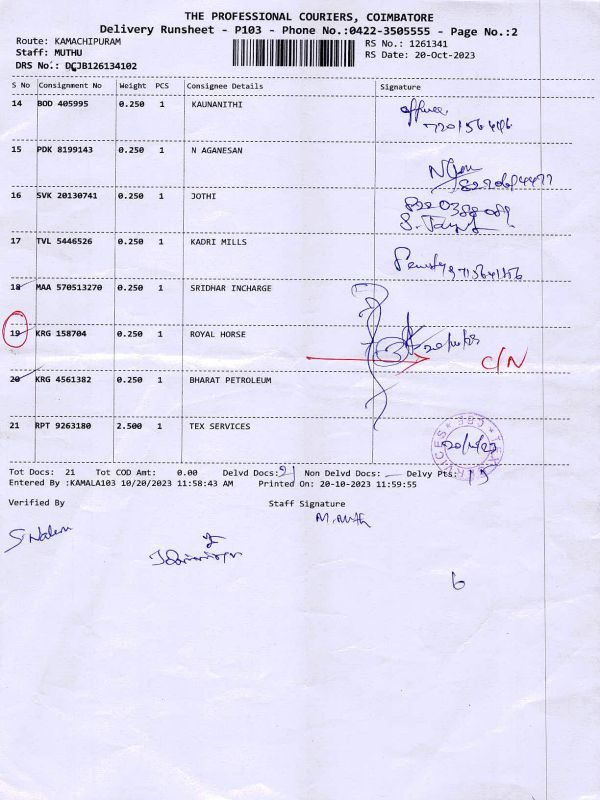 THE PROFESSIONAL COURIERS, COIMBATORE
Delivery Runsheet - P103 - Phone No.:0422-3505555 - Page No.:2
Route: KAMACHIPURAM RS No.: 1261341
Staff: MUTHU RS Date: 20-Oct-2023
DRS No.: DCJB126134102
S No Consignment No Weight PCS Consignee Details Signature
14 BOD 405995 0.250 1 KAUNANITHI
15 PDK 8199143 0.250 1 N AGANESAN
16 SVK 20130741 0.250 1 JOTHI
17 TVL 5446526 0.250 1 KADRI MILLS
18 MAA 570513270 0.250 1 SRIDHAR INCHARGE
19 KRG 158704 0.250 1 ROYAL HORSE
C/N
20 KRG 4561382 0.250 1 BHARAT PETROLEUM
21 RPT 9263180 2.500 1 TEX SERVICES
Tot Docs: 21 Tot COD Amt: 0.00 Delvd Docs: 21 Non Delvd Docs: Delvy Pts:
Entered By :KAMALA103 10/20/2023 11:58:43 AM Printed On: 20-10-2023 11:59:55
Verified By Staff Signature
6